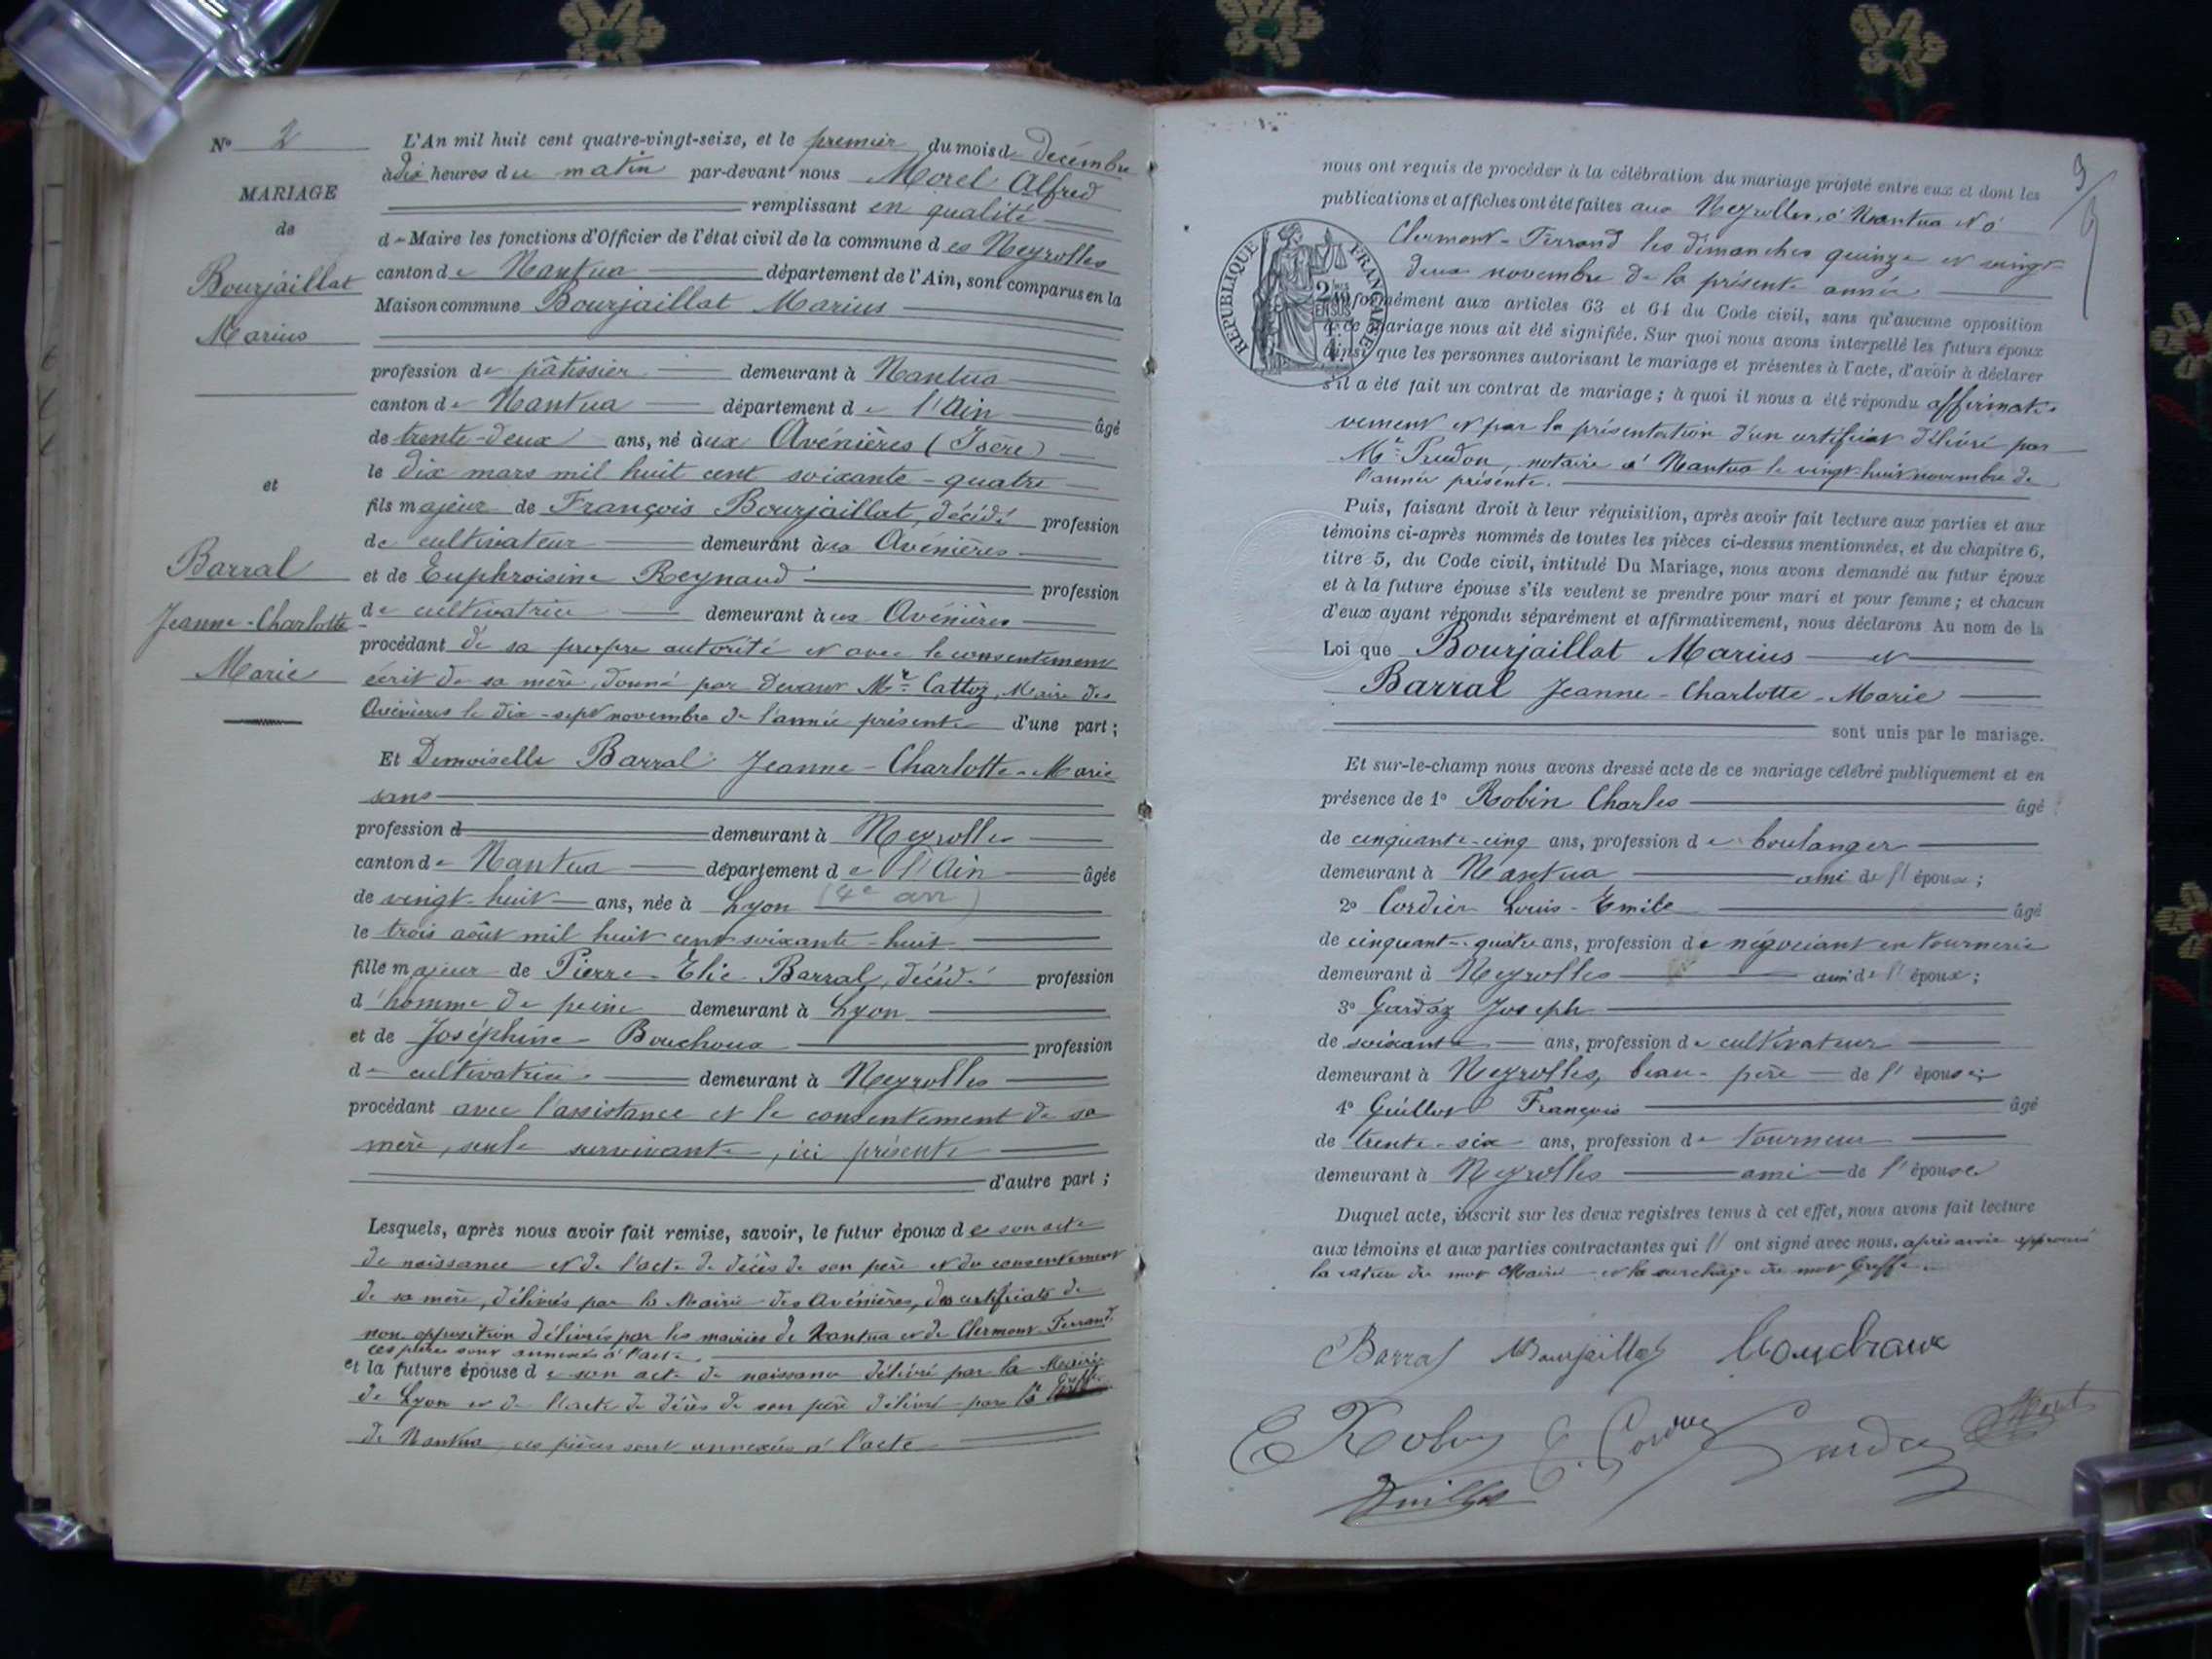 N° 2
MARIAGE
de
Bourjaillat
Marius
et
Barral
Jeanne-Charlotte
Marie
L'An mil huit cent quatre-vingt-seize, et le premier du mois de décembre
à dix heures du matin par-devant nous Morel Alfred
remplissant en qualité
de Maire les fonctions d'Officier de l'état civil de la commune des Neyrolles
canton de Nantua département de l'Ain, sont comparus en la
Maison commune Bourjaillat Marius
profession de pâtissier demeurant à Nantua
canton de Nantua département de l'Ain âgé
de trente-deux ans, né aux Avénières (Isère)
le dix mars mil huit cent soixante-quatre
fils majeur de François Bourjaillat, décédé profession
de cultivateur demeurant aux Avénières
et de Euphroisine Reynaud profession
de cultivatrice demeurant aux Avénières
procédant de sa propre autorité et avec le consentement
écrit de sa mère, donné par devant Mr Cattoz, Maire des
Avénières le dix-sept novembre de l'année présente d'une part ;
Et Demoiselle Barral Jeanne-Charlotte-Marie
sans
profession d demeurant à Neyrolles
canton de Nantua département de l'Ain âgée
de vingt-huit ans, née à Lyon (4e arr)
le trois août mil huit cent soixante-huit
fille majeur de Pierre-Elie Barral, décédé profession
d'homme de peine demeurant à Lyon
et de Joséphine Bouchoux profession
de cultivatrice demeurant à Neyrolles
procédant avec l'assistance et le consentement de sa
mère, seule survivante, ici présente
d'autre part ;
Lesquels, après nous avoir fait remise, savoir, le futur époux de son acte
de naissance et de l'acte de décès de son père et du consentement
de sa mère, délivrés par la Mairie des Avénières, des certificats de
non opposition délivrés par les mairies de Nantua et de Clermont-Ferrand
ces pièces sont annexées à l'acte
et la future épouse de son acte de naissance délivré par la Mairie
de Lyon et de l'acte de décès de son père délivré par le Greffe
de Nantua, ces pièces sont annexées à l'acte
3
nous ont requis de procéder à la célébration du mariage projeté entre eux et dont les
publications et affiches ont été faites aux Neyrolles, à Nantua et à
Clermont-Ferrand les dimanches quinze et vingt-
deux novembre de la présente année
conformément aux articles 63 et 64 du Code civil, sans qu'aucune opposition
à ce mariage nous ait été signifiée. Sur quoi nous avons interpellé les futurs époux
ainsi que les personnes autorisant le mariage et présentes à l'acte, d'avoir à déclarer
s'il a été fait un contrat de mariage ; à quoi il nous a été répondu affirmati-
vement et par la présentation d'un certificat délivré par
Mr Prudon, notaire à Nantua le vingt-huit novembre de
l'année présente.
REPUBLIQUE FRANÇAISE
Puis, faisant droit à leur réquisition, après avoir fait lecture aux parties et aux
témoins ci-après nommés de toutes les pièces ci-dessus mentionnées, et du chapitre 6,
titre 5, du Code civil, intitulé Du Mariage, nous avons demandé au futur époux
et à la future épouse s'ils veulent se prendre pour mari et pour femme ; et chacun
d'eux ayant répondu séparément et affirmativement, nous déclarons Au nom de la
Loi que Bourjaillat Marius et
Barral Jeanne-Charlotte-Marie
sont unis par le mariage.
Et sur-le-champ nous avons dressé acte de ce mariage célébré publiquement et en
présence de 1° Robin Charles âgé
de cinquante-cinq ans, profession de boulanger
demeurant à Nantua ami de l'époux ;
2° Cordier Louis-Emile âgé
de cinquante-quatre ans, profession de négociant en tournerie
demeurant à Neyrolles ami de l'époux ;
3° Gardaz Joseph
de soixante ans, profession de cultivateur
demeurant à Neyrolles, beau-père de l'épouse ;
4° Guillot François âgé
de trente-six ans, profession de tourneur
demeurant à Neyrolles ami de l'épouse
Duquel acte, inscrit sur les deux registres tenus à cet effet, nous avons fait lecture
aux témoins et aux parties contractantes qui ont signé avec nous. après avoir approuvé
la rature du mot Mairie et la surcharge du mot Greffe
Barral Bourjaillat Bouchoux
E Robin E. Cordier Gardaz Morel
Guillot